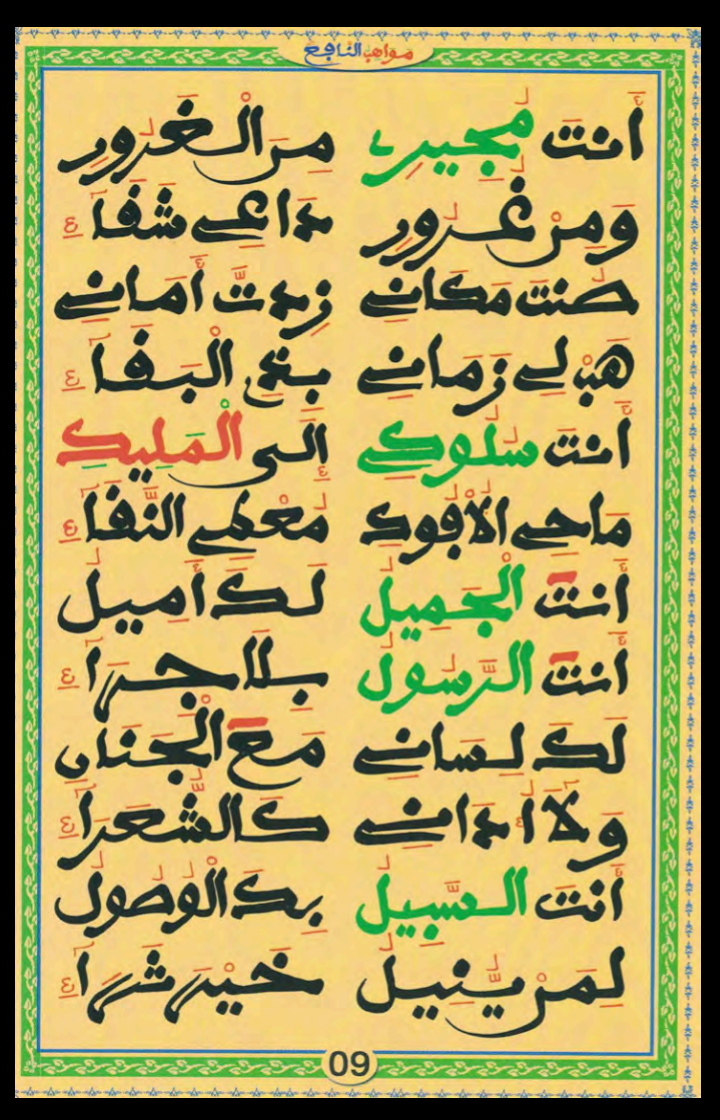 مواهب النافع
أَنتَ مُجِيرِے مِنَ الْغُرُورِ
وَمِنْ غُرُورِ دَاعِے شَفَآءِ
صُنتَ مَكَانِے زِدتَّ أَمَانِے
هَبْ لِے زَمَانِے بِنَحْوِ الْبَقَآءِ
أَنتَ سُلُوكِے إِلَى الْمَلِيكِ
مَاحِے الْأُفُوكِ مُعْطِے النَّقَآءِ
أَنتَ الْجَمِيلُ لَكَ أَمِيلُ
أَنتَ الرَّسُولُ بِلَا جِرَآءِ
لَكَ لِسَانِے مَعَ الْجَنَانِ
وَلَآ أُدَانِے كَالشُّعَرَآءِ
أَنتَ السَّبِيلُ بِكَ الْوُصُولُ
لِمَنْ يُنِيلُ خَيْرَ شِرَآءِ
09